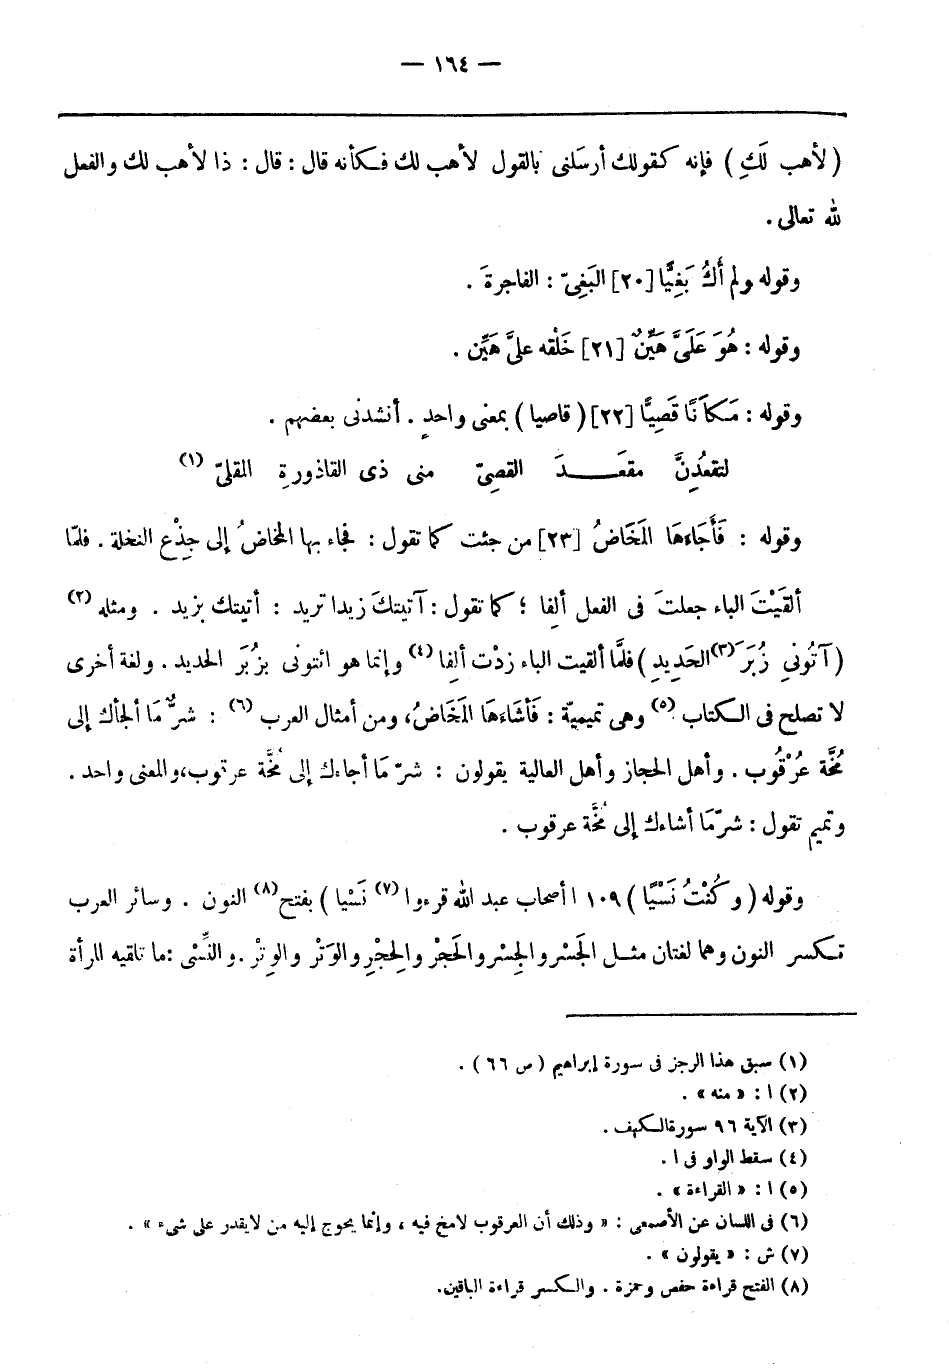 — ١٦٤ —
( لأهب لَكِ ) فإنه كقولك أرسَلنى بالقول لأهب لك فكأنه قال : قال : ذا لأهب لك والفعل
لله تعالى .
وقوله ولم أَكُ بَغِيًّا [٢٠] البَغِىّ : الفاجرة .
وقوله : هُوَ عَلَىَّ هَيِّنٌ [٢١] خَلْقه علىَّ هَيِّن .
وقوله : مَكاَنًا قَصِيًّا [٢٢] ( قاصيا ) بمعنى واحدٍ . أنشدنى بعضهم .
لتقعُدِنَّ مقعَـــــدَ القصِىّ منى ذى القاذورةِ المقلىّ (١)
وقوله : فَأَجَاءَهَا المَخَاضُ [٢٣] من جئت كما تقول : فجاء بها المخاضُ إلى جِذْع النخلة . فلمّا
ألقَيْتَ الباء جعلتَ فى الفعل ألِفا ؛ كما تقول : آتيتكَ زيدا تريد : أتيتك بزيد . ومثله (٢)
( آتُونِى زُبَرَ (٣) الحَدِيدِ ) فلمَّا ألقيت الباء زدْت ألِفا (٤) وإنما هو ائتونى بزُبَرَ الحديد . ولغة أخرى
لا تصلح فى الكتاب (٥) وهى تميميّة : فَأشَاءَهَا المَخَاضُ، ومن أمثال العرب (٦) : شرٌّ مَا ألجأك إلى
مُخَّة عُرْقُوب . وأهل الحجاز وأهل العالية يقولون : شرّ مَا أجاءك إلى مُخَّة عرقوب، والمعنى واحد .
وتميم تقول : شرّمَا أشاءك إلى مُخَّة عرقوب .
وقوله ( وكُنْتُ نَسْيًا ) ١٠٩ ا أصحاب عبد الله قرءوا (٧) نَسْيا ) بفتح (٨) النون . وسائر العرب
تكسر النون وهما لغتان مثل الجَسْر والجِسْر والحَجْر والحِجْرِ والوَتْر والوِتْر . والنِّسْى : ما تلقيه المرأة
(١) سبق هذا الرجز فى سورة إبراهيم ( ص ٦٦ ) .
(٢) ا : « منه » .
(٣) الآية ٩٦ سورة الكهف .
(٤) سقط الواو فى ا .
(٥) ا : « القراءة » .
(٦) فى اللسان عن الأصمعى : « وذلك أن العرقوب لامخ فيه ، وإنما يحوج إليه من لايقدر على شىء » .
(٧) ش : « يقولون » .
(٨) الفتح قراءة حفص وحمزة . والكسر قراءة الباقين.